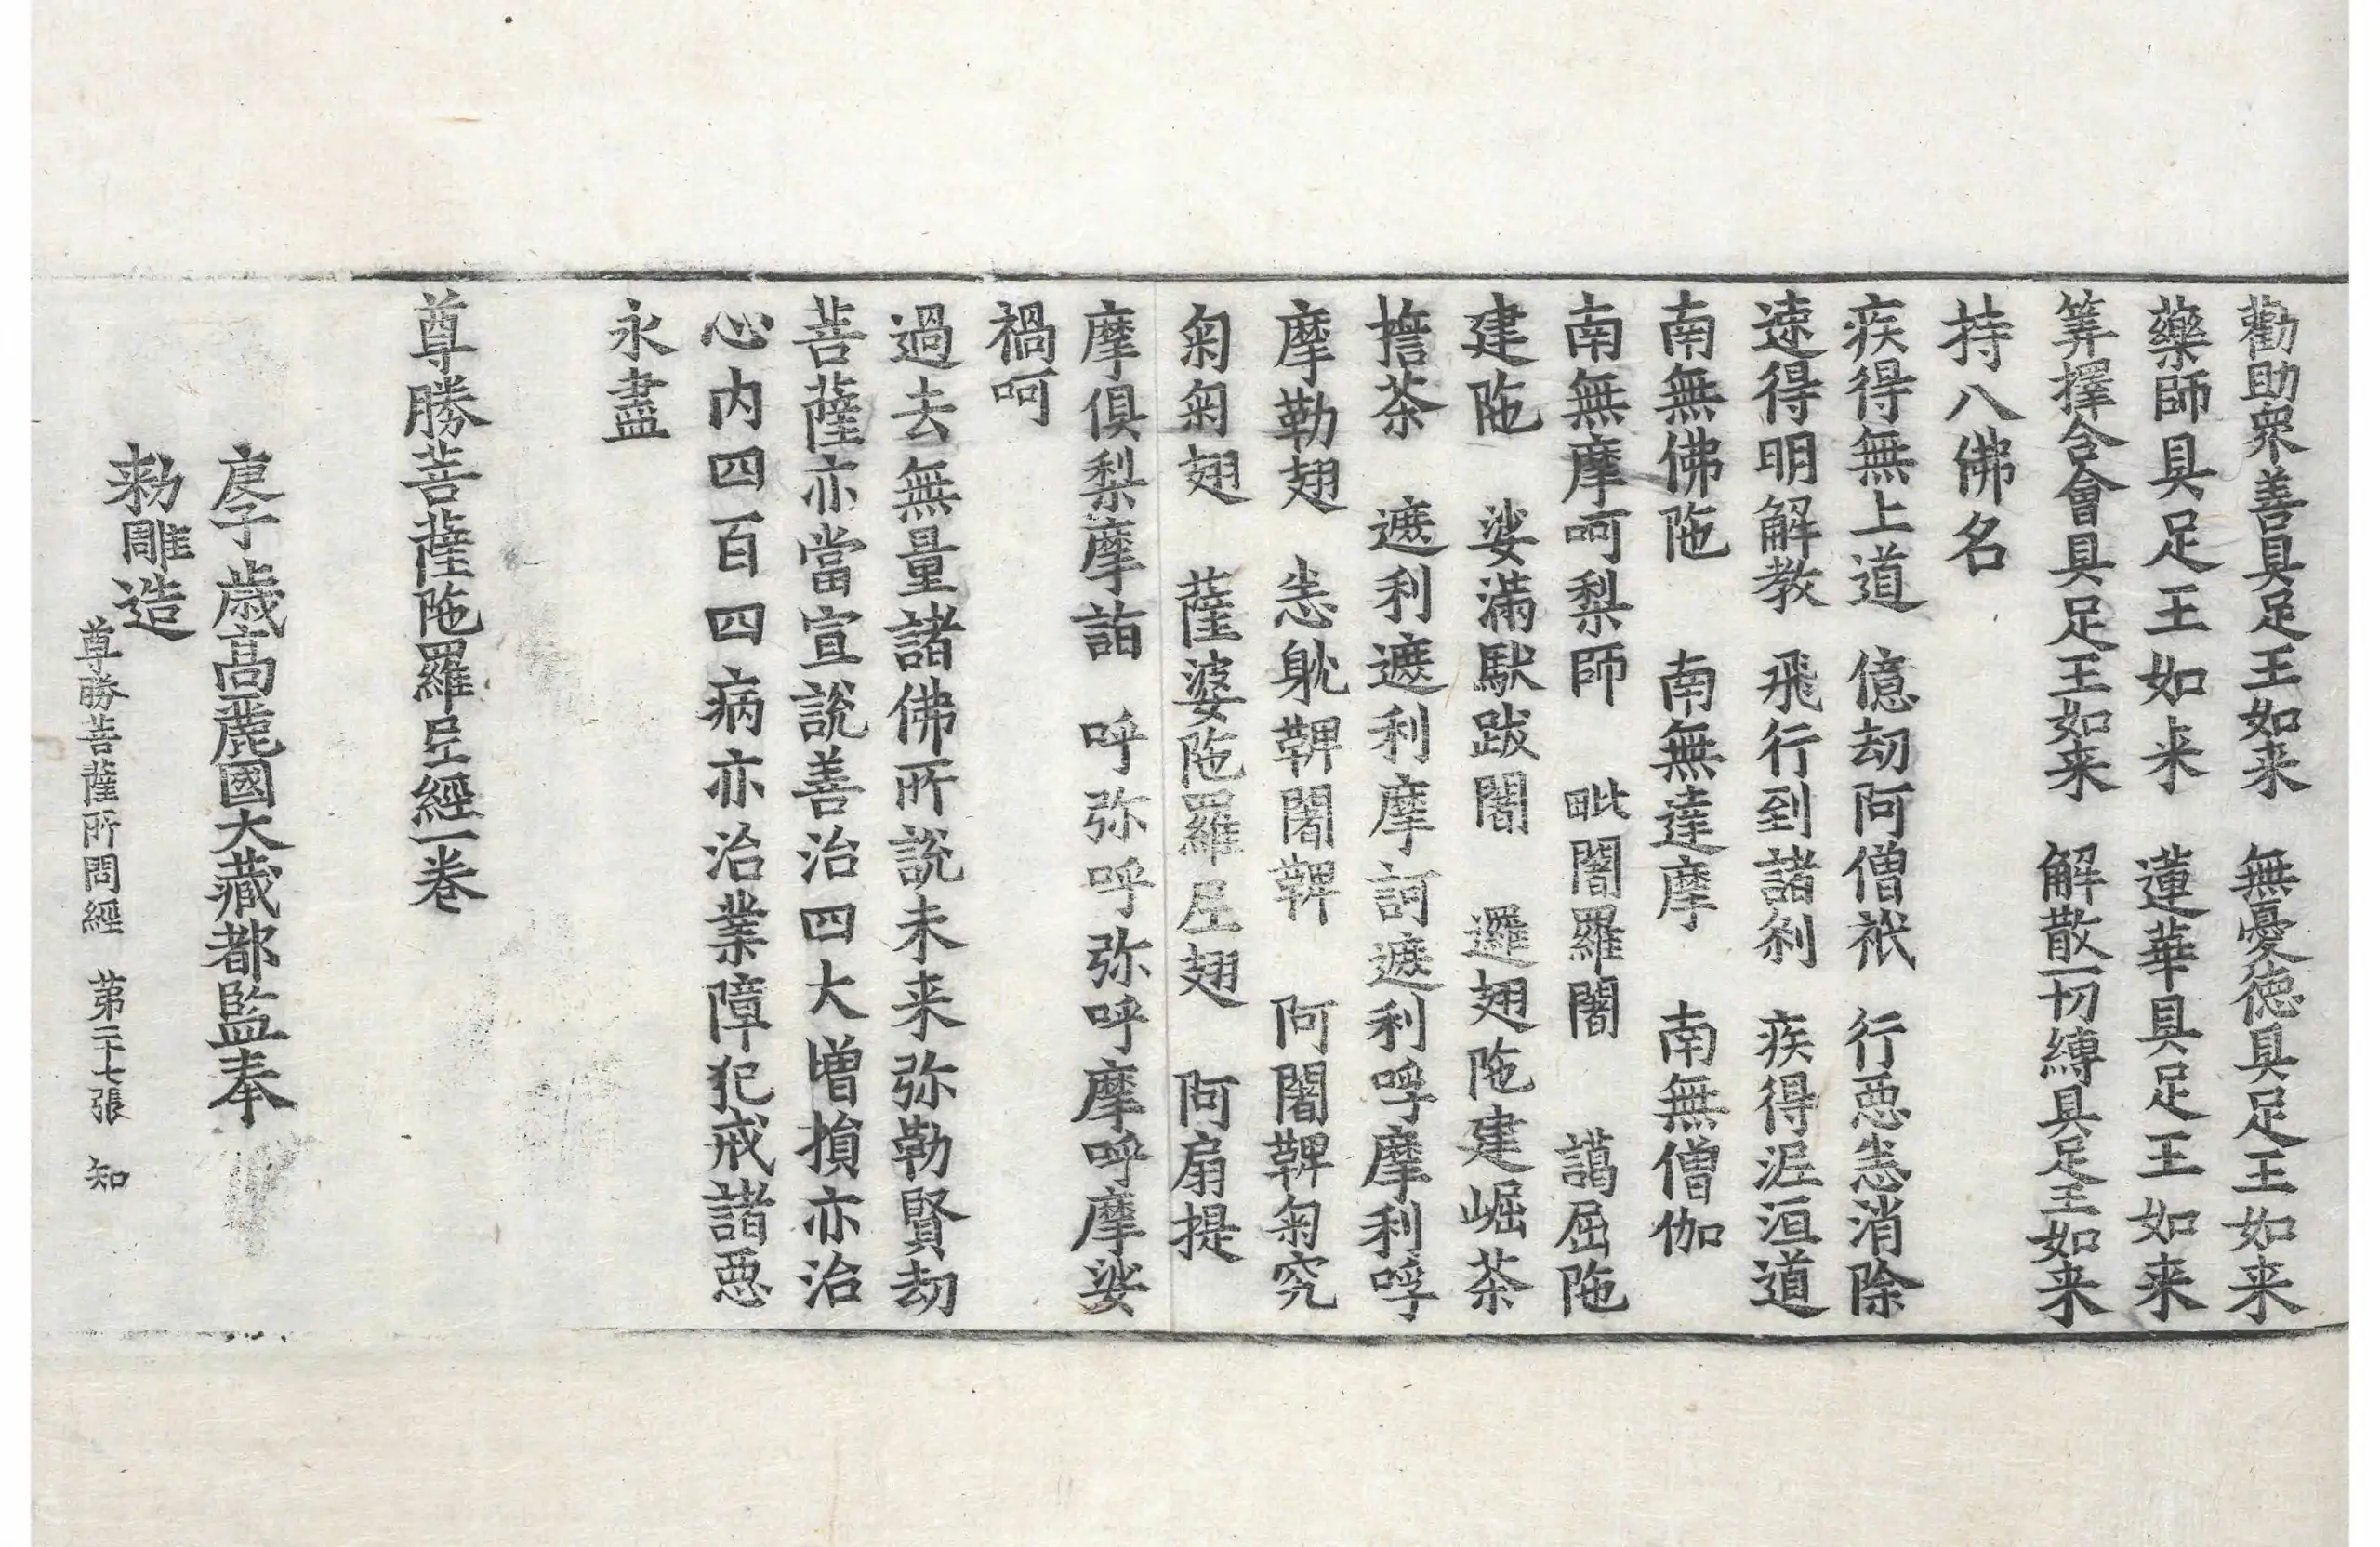 勸助衆善具足王如来　無憂德具足王如来
藥師具足王如来　蓮華具足王如来
筭擇合會具足王如来　解散一切縛具足王如来
持八佛名
疾得無上道　億劫阿僧祇　行惡恙消除
速得明解教　飛行到諸刹　疾得泥洹道
南無佛陁　南無達摩　南無僧伽
南無摩呵梨師　毗闍羅闍　謁屈陁
建陁　娑滿馱跋闍　邏翅陁建崛茶
擔茶　遮利遮利摩訶遮利呼摩利呼
摩勒翅　恙躭鞞闍鞞　阿闍鞞匊究
匊匊翅　薩婆陁羅𡰱翅　阿扇提
摩俱梨摩詣　呼弥呼弥呼摩呼摩娑
禍呵
過去無量諸佛所說未来弥勒賢劫
菩薩亦當宣說善治四大增損亦治
心内四百四病亦治業障犯戒諸惡
永盡
尊勝菩薩陁羅𡰱經一卷
庚子歲高麗國大藏都監奉
勑雕造
尊勝菩薩所問經　苐二十七張　知